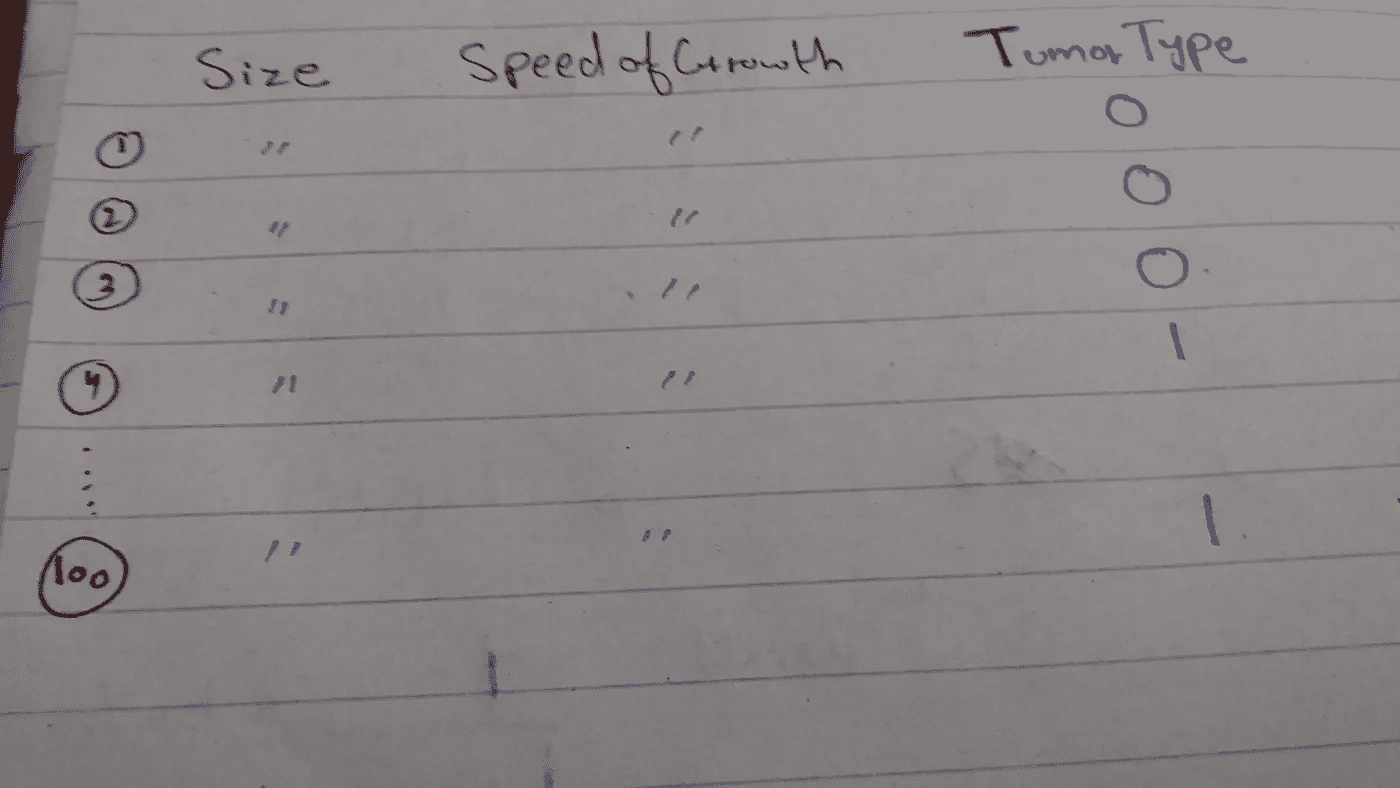 Size Speed of Growth Tumor Type
1 " " 0
2 " " 0
3 " " 0
4 " " 1
.....
100 " " 1